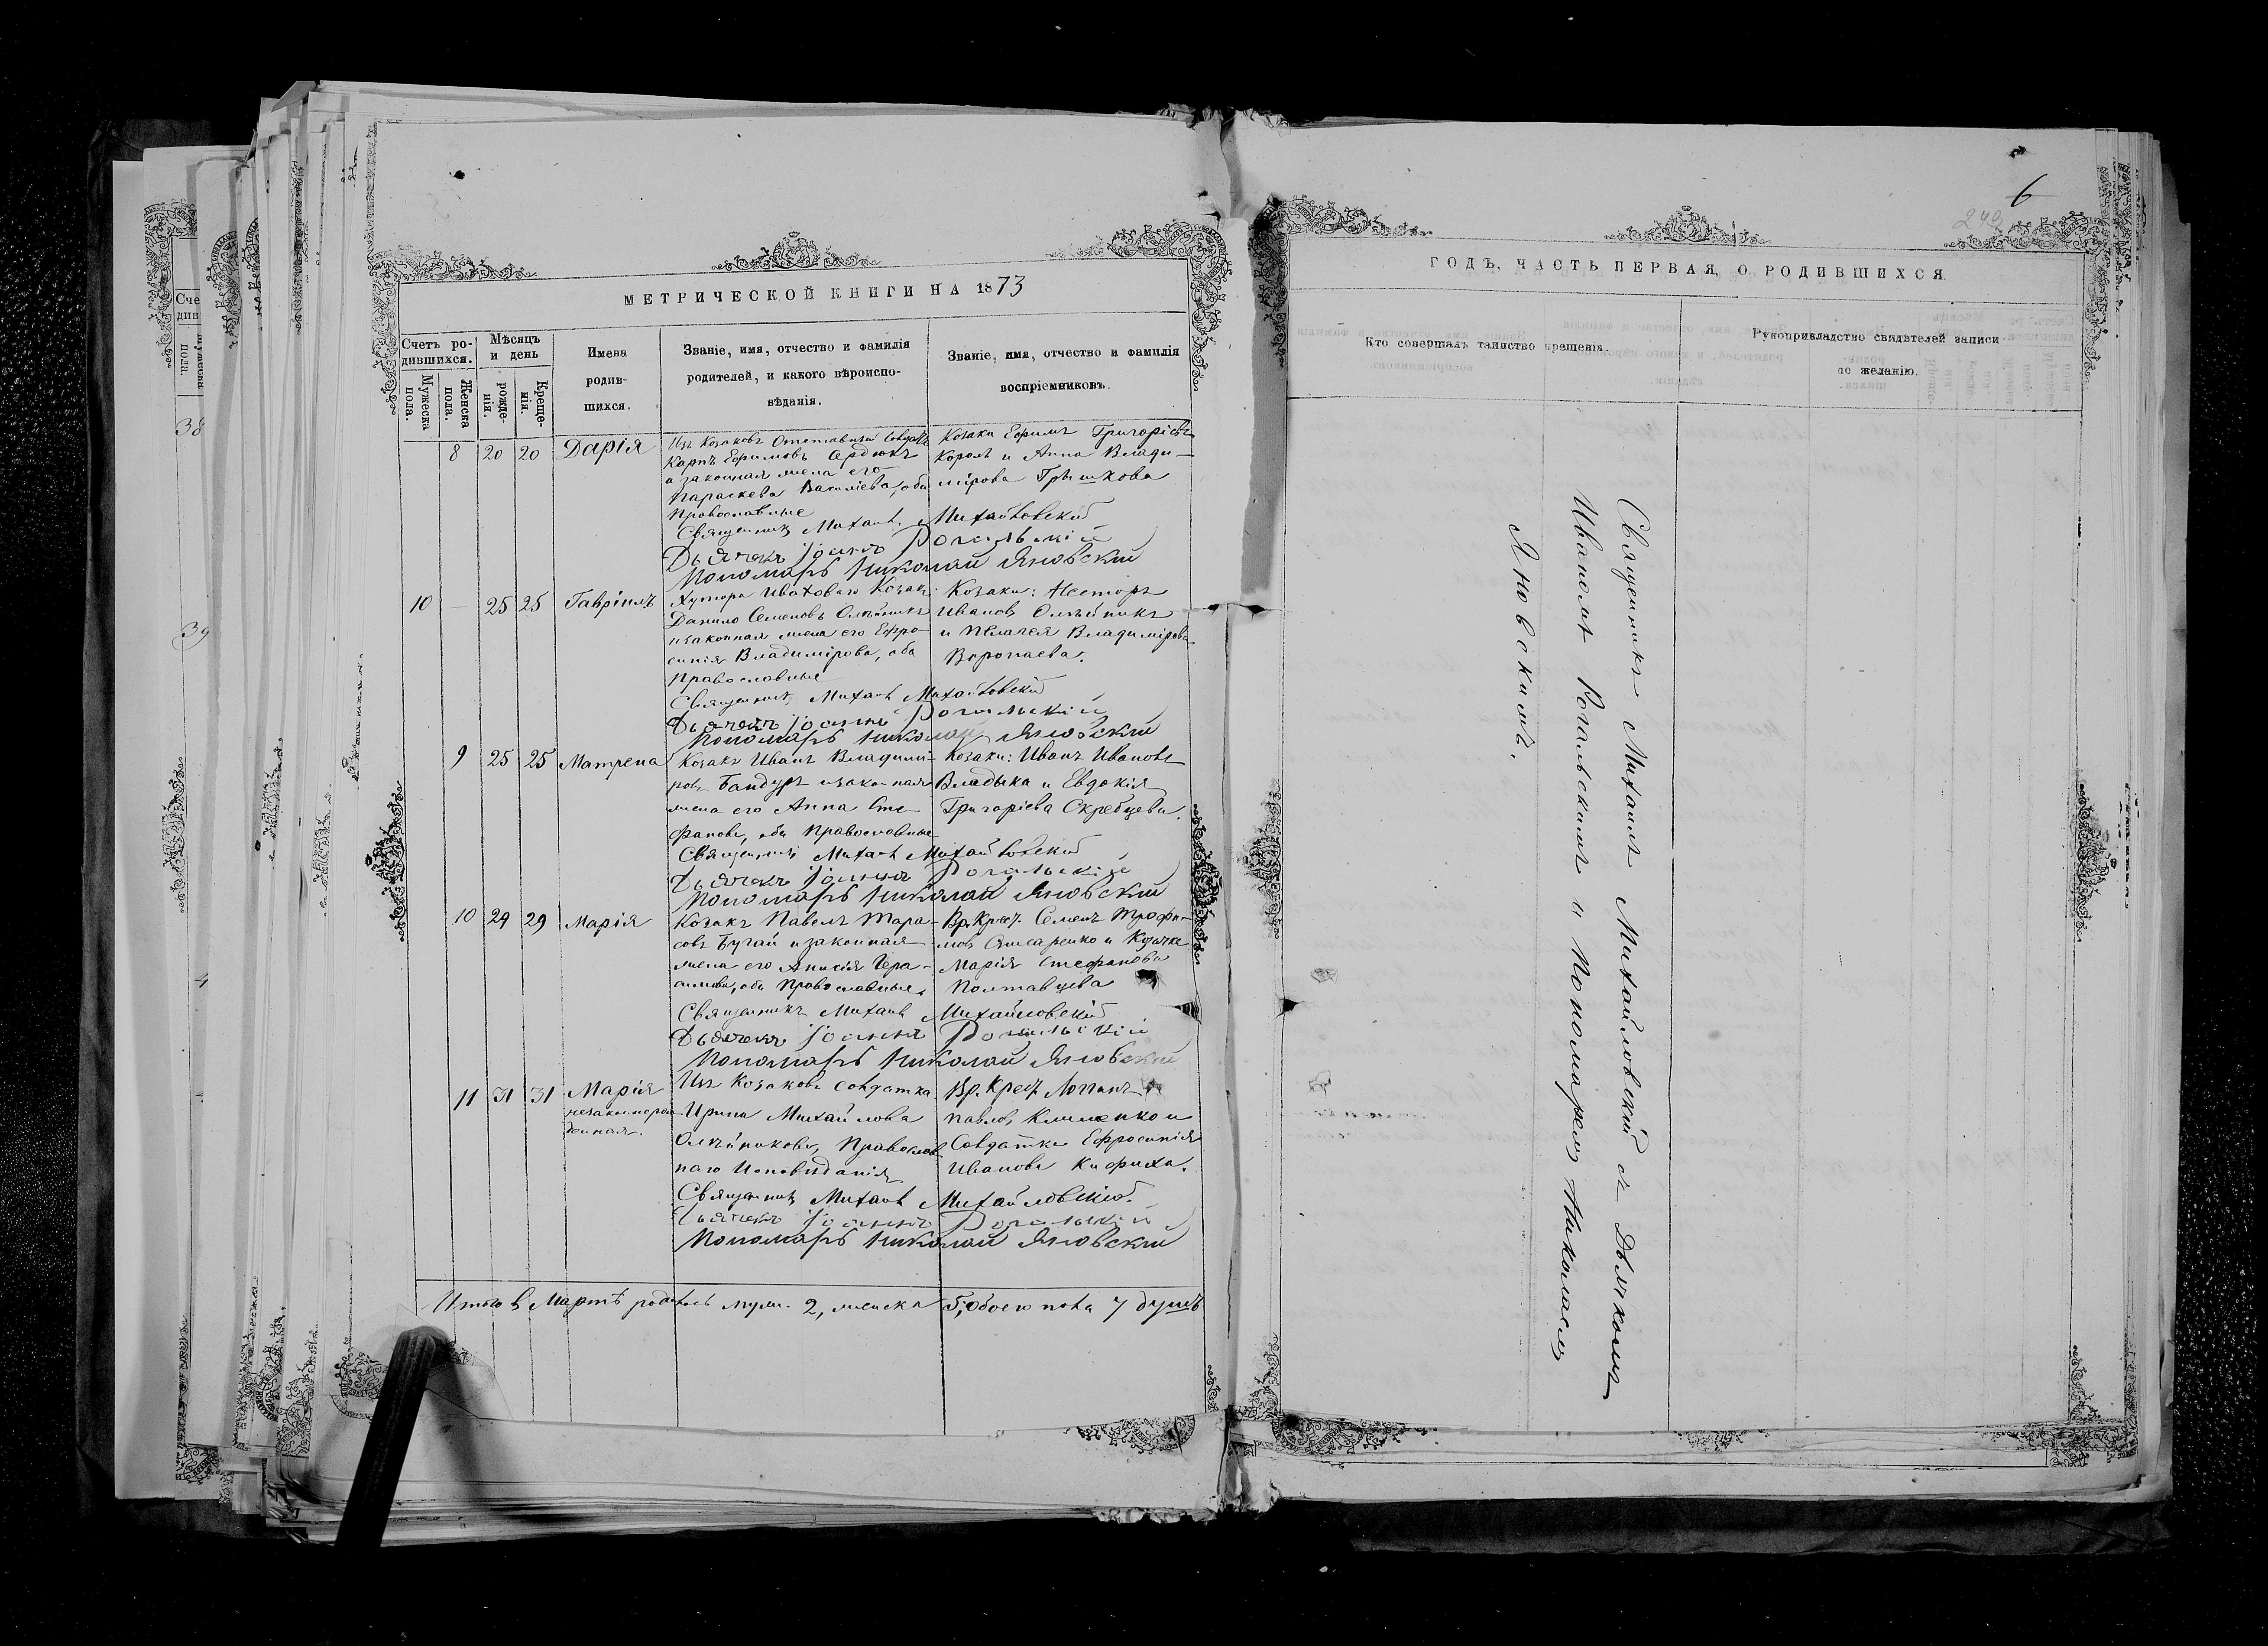 МЕТРИЧЕСКОЙ КНИГИ НА 1873
Счетъ ро-
дившихся.
Мужеска
пола.
Женска
пола.
Мѣсяцъ
и день
рожде-
нія.
Креще-
нія.
Имена
родив-
шихся.
Званіе, имя, отчество и фамилія
родителей, и какого вѣроиспо-
вѣданія.
Званіе, имя, отчество и фамилія
воспріемниковъ.
8 20 20 Дарія
Изъ Козаковъ Отставный
Карпъ Ефимовъ Сердюкъ
и законная жена его
Параскева Василіева, оба
Православные
Козаки Ефимъ Григоріевъ
Король и Анна Влади-
мірова Грышкова
Священникъ Михаилъ Михайловскій
Дьячекъ Іоаннъ Рогальскій
Пономарь Николай Яновскій
10 — 25 25 Гавріилъ
Хутора Козакъ
Данило Семеновъ Олейникъ
и законная жена его Ефро-
синія Владимірова, оба
Православные
Козаки: Несторъ
Ивановъ Олейникъ
и Пелагея Владимірова
Воропаева.
Священникъ Михаилъ Михайловскій
Дьячекъ Іоаннъ Рогальскій
Пономарь Николай Яновскій
9 25 25 Матрена
Козакъ Иванъ Владими-
ровъ Бандуръ и законная
жена его Анна Сте-
фанова, оба Православные
Козаки: Иванъ Ивановъ
Владыка и Евдокія
Григоріева Скребцева.
Священникъ Михаилъ Михайловскій
Дьячекъ Іоаннъ Рогальскій
Пономарь Николай Яновскій
10 29 29 Марія
Козакъ Павелъ Тара-
совъ Бугай и законная
жена его Аникія Гера-
симова, оба Православные.
Вр. Крест. Семенъ Трофи-
мовъ и Козачка
Марія Стефанова
Полтавцева
Священникъ Михаилъ Михайловскій
Дьячекъ Іоаннъ Рогальскій
Пономарь Николай Яновскій
11 31 31 Марія
незаконнорож-
денная.
Изъ Козаковъ Солдатка
Ирина Михайлова
Олейникова, Православ-
наго Исповѣданія.
Вр. Крест. Логгинъ
Павловъ Клименко и
Солдатка Ефросинія
Иванова Кифиха.
Священникъ Михаилъ Михайловскій.
Дьячекъ Іоаннъ Рогальскій
Пономарь Николай Яновскій
Итого въ Мартѣ родилось муж. 2, женска 5, обоего пола 7 душъ
6
240
ГОДЪ, ЧАСТЬ ПЕРВАЯ, О РОДИВШИХСЯ
Кто совершалъ таинство крещенія.
Рукоприкладство свидѣтелей записи
по желанію.
Священникъ Михаилъ Михайловскій съ Дьячкомъ
Иваномъ Рогальскимъ и Пономаремъ Николаемъ
Яновскимъ.
38
39
4